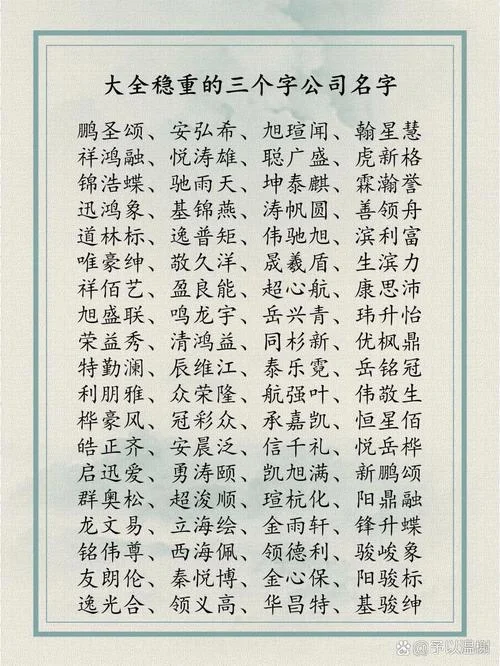 大全稳重的三个字公司名字
鹏圣颂、安弘希、旭瑄闻、翰星慧
祥鸿融、悦涛雄、聪广盛、虎新格
锦浩蝶、驰雨天、坤泰麒、霖瀚誉
迅鸿象、基锦燕、涛帆圆、善领舟
道林标、逸普矩、伟驰旭、滨利富
唯豪绅、敬久洋、晟羲盾、生滨力
祥佰艺、盈良能、超心航、康思沛
旭盛联、鸣龙宇、岳兴青、玮升怡
荣益秀、清鸿益、同杉新、优枫鼎
特勤澜、辰维江、泰乐霓、岳铭冠
利朋雅、众荣隆、航强叶、伟敬生
桦豪风、冠彩众、承嘉凯、恒星佰
皓正齐、安晨泛、信千礼、悦岳桦
启迅爱、勇涛颐、凯旭满、新鹏颂
群奥松、超浚顺、瑄杭化、阳鼎融
龙文易、立海绘、金雨轩、锋升蝶
铭伟尊、西海佩、领德利、骏峻象
友朗伦、秦悦博、金心保、阳骏标
逸光合、领义高、华昌特、基骏绅
@予以温榭